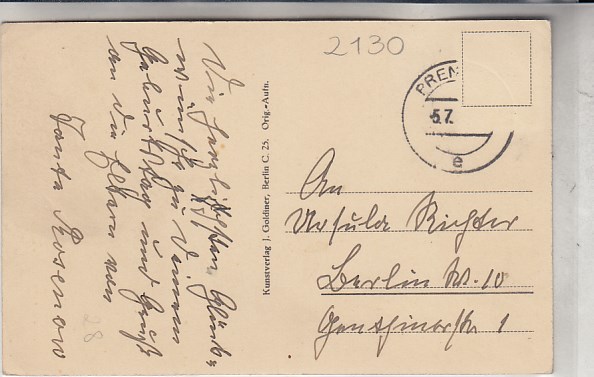 2130
Die herzlichsten Glück-
wünsche zu Deinem
Geburtstag und Gruß
an die Eltern von
Tante Rosenow
28
Kunstverlag J. Goldiner, Berlin C. 25. Orig.-Aufn.
PREN
5.7.
e
An
Ursula Richter
Berlin W. 10
Genthinerstr. 1